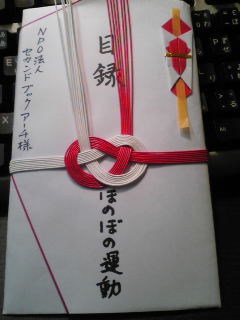 NPO法人
セカンドブックアーチ様
目録
ほのぼの運動